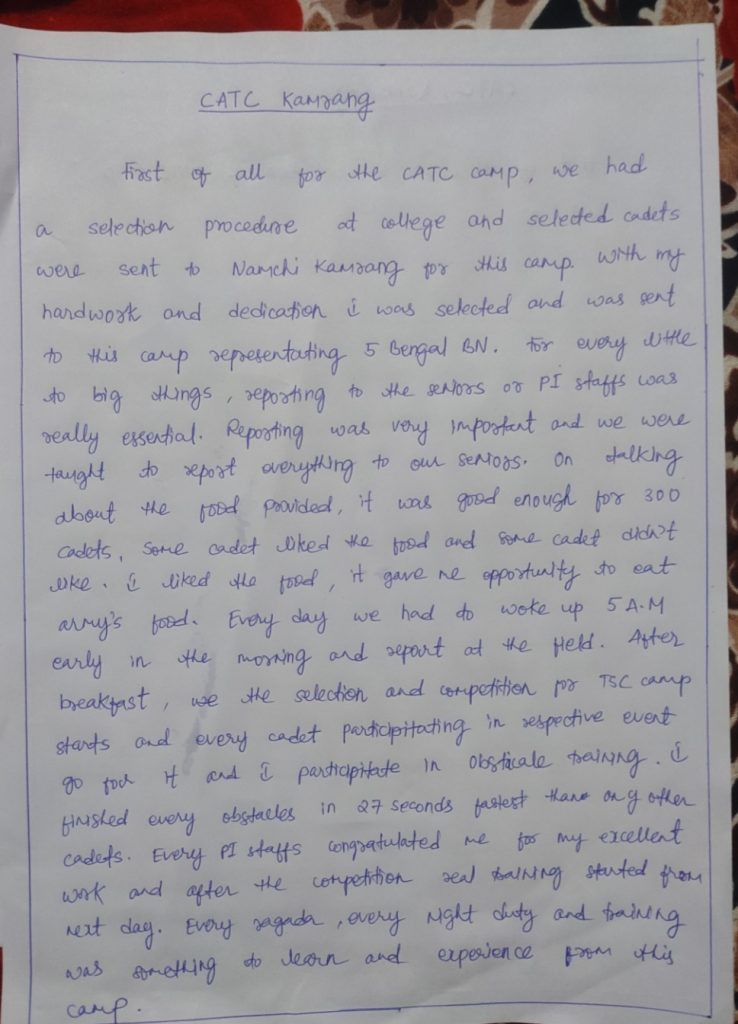 CATC Kamrang
First of all for the CATC camp, we had
a selection procedure at college and selected cadets
were sent to Namchi Kamrang for this camp. With my
hardwork and dedication i was selected and was sent
to this camp representating 5 Bengal BN. For every little
to big things, reporting to the seniors or PI staffs was
really essential. Reporting was very important and we were
taught to report everything to our seniors. On talking
about the food provided, it was good enough for 300
cadets, some cadet liked the food and some cadet didn't
like. i liked the food, it gave me opportunity to eat
army's food. Every day we had to woke up 5 A.M
early in the morning and report at the field. After
breakfast, we the selection and competition for TSC camp
starts and every cadet participitating in respective event
go for it and i participitate in obstacale training. i
finished every obstacles in 27 seconds fastest than any other
cadets. Every PI staffs congratulated me for my excellent
work and after the competition real training started from
next day. Every ragada, every night duty and training
was something to learn and experience from this
camp.